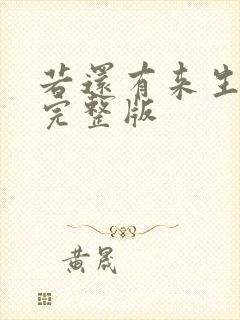 若還有来生
完整版
黄晟